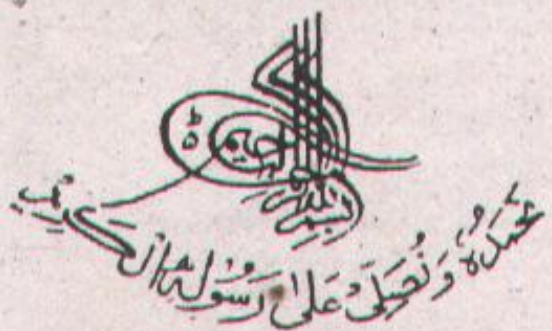 بسم الله الرحمن الرحيم
نحمدهٗ وَنُصَلِّیْ عَلٰی رَسُوْلِهِ الْکَرِیْم